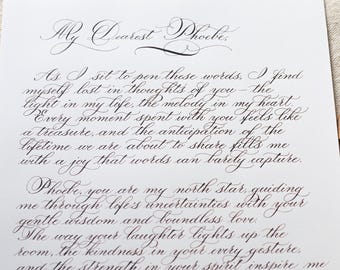 My Dearest Phoebe,
As I sit to pen these words, I find
myself lost in thoughts of you – the
light in my life, the melody in my heart.
Every moment spent with you feels like
a treasure, and the anticipation of the
lifetime we are about to share fills me
with a joy that words can barely capture.
Phoebe, you are my north star, guiding
me through life's uncertainties with your
gentle wisdom and boundless love.
The way your laughter lights up the
room, the kindness in your every gesture,
and the strength in your spirit inspire me